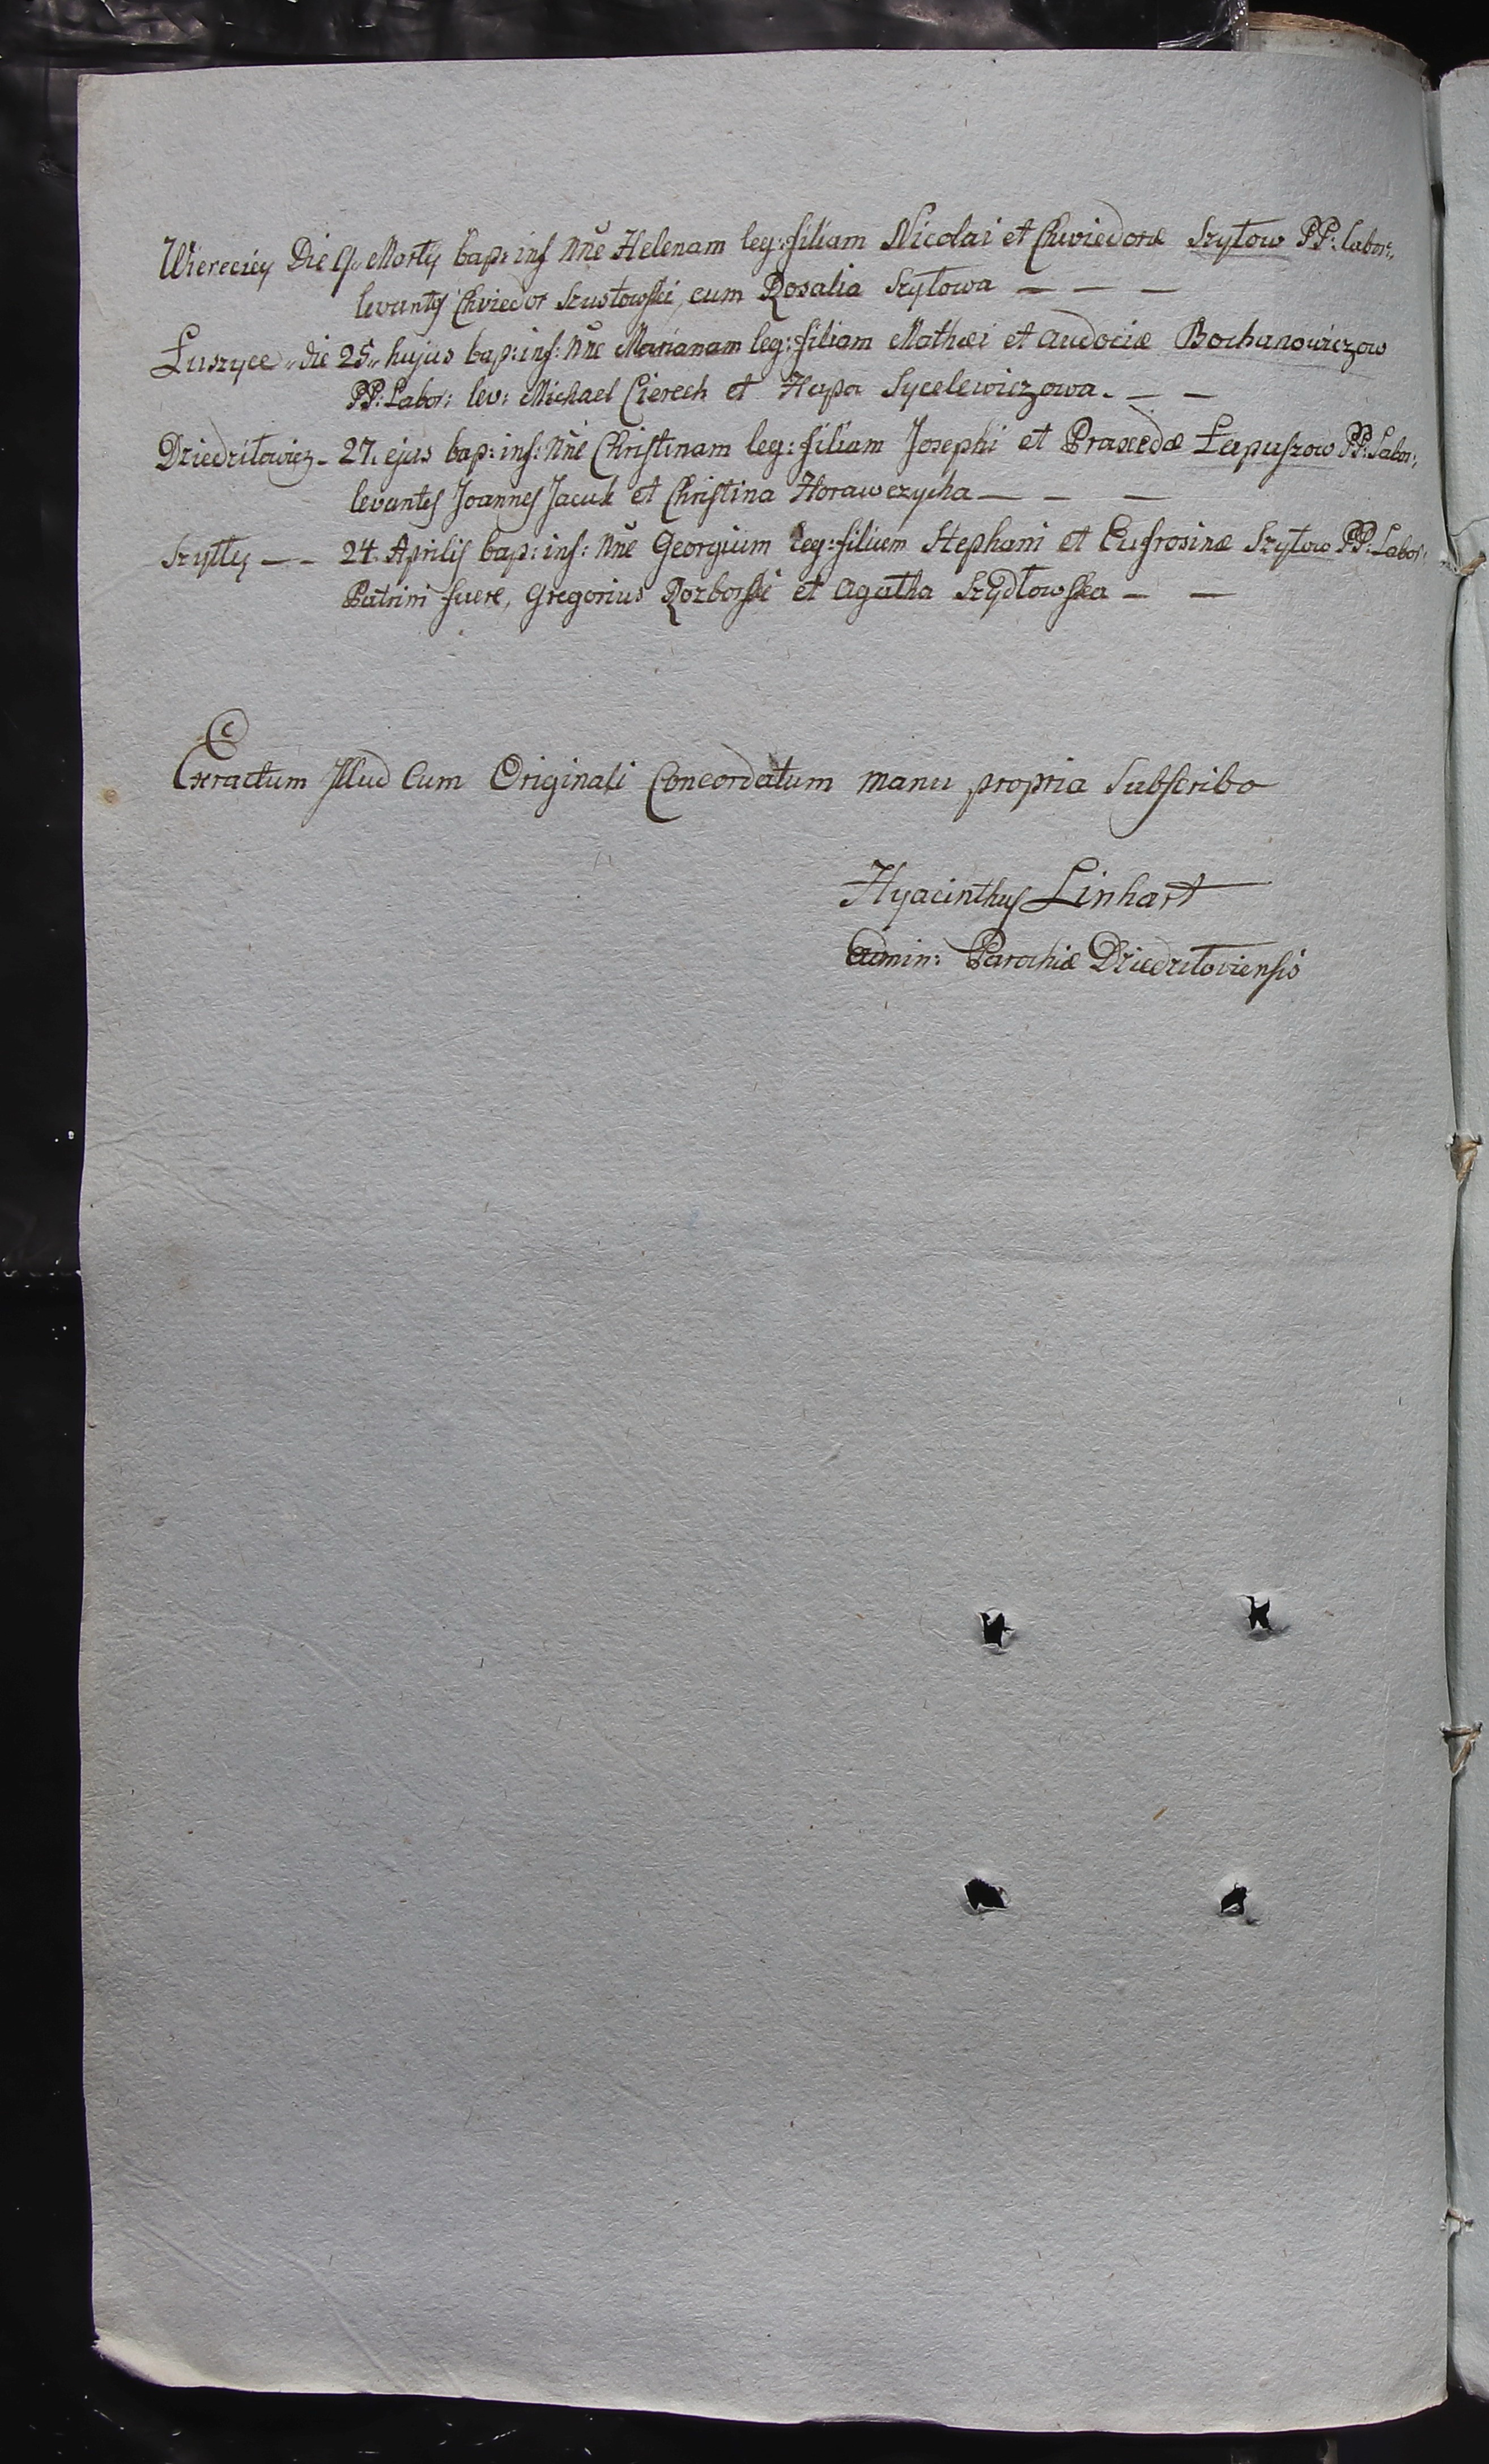 Wiereciey Die 9. Martij bap: inf Nn̄e Helenam leg: filiam Nicolai et Chwiedoræ Szyłow PP: Labor:,
levantes Chviedor Szustowski, cum Rosalia Szyłowa — — —
Łuszyce „ die 25 „ hujus bap: inf: Nn̄e Mariannam leg: filiam Mathæi et Audociæ Bochanowiczow
PP: Labor: lev: Michael Cierech et Hapa Sycelewiczowa. — —
Dziedziłowicz - 27. ejus bap: inf: Nn̄e Christinam leg: filiam Josephi et Praxedæ Łapuszow PP: Labor:,
levantes Joannes Jacuk et Christina Horawczycha — — —
Szyłły — — 24. Aprilis bap: inf: Nn̄e Georgium leg: filium Stephani et Eufrosinæ Szyłow PP: Labor:
Patrini fuere, Gregorius Rozborski et Agatha Szydłowska — —
Exractum Illud Cum Originali Concordatum manu propria Subscribo
Hyacinthus Linhart
Admin: Parochiæ Dziedziłoviensis